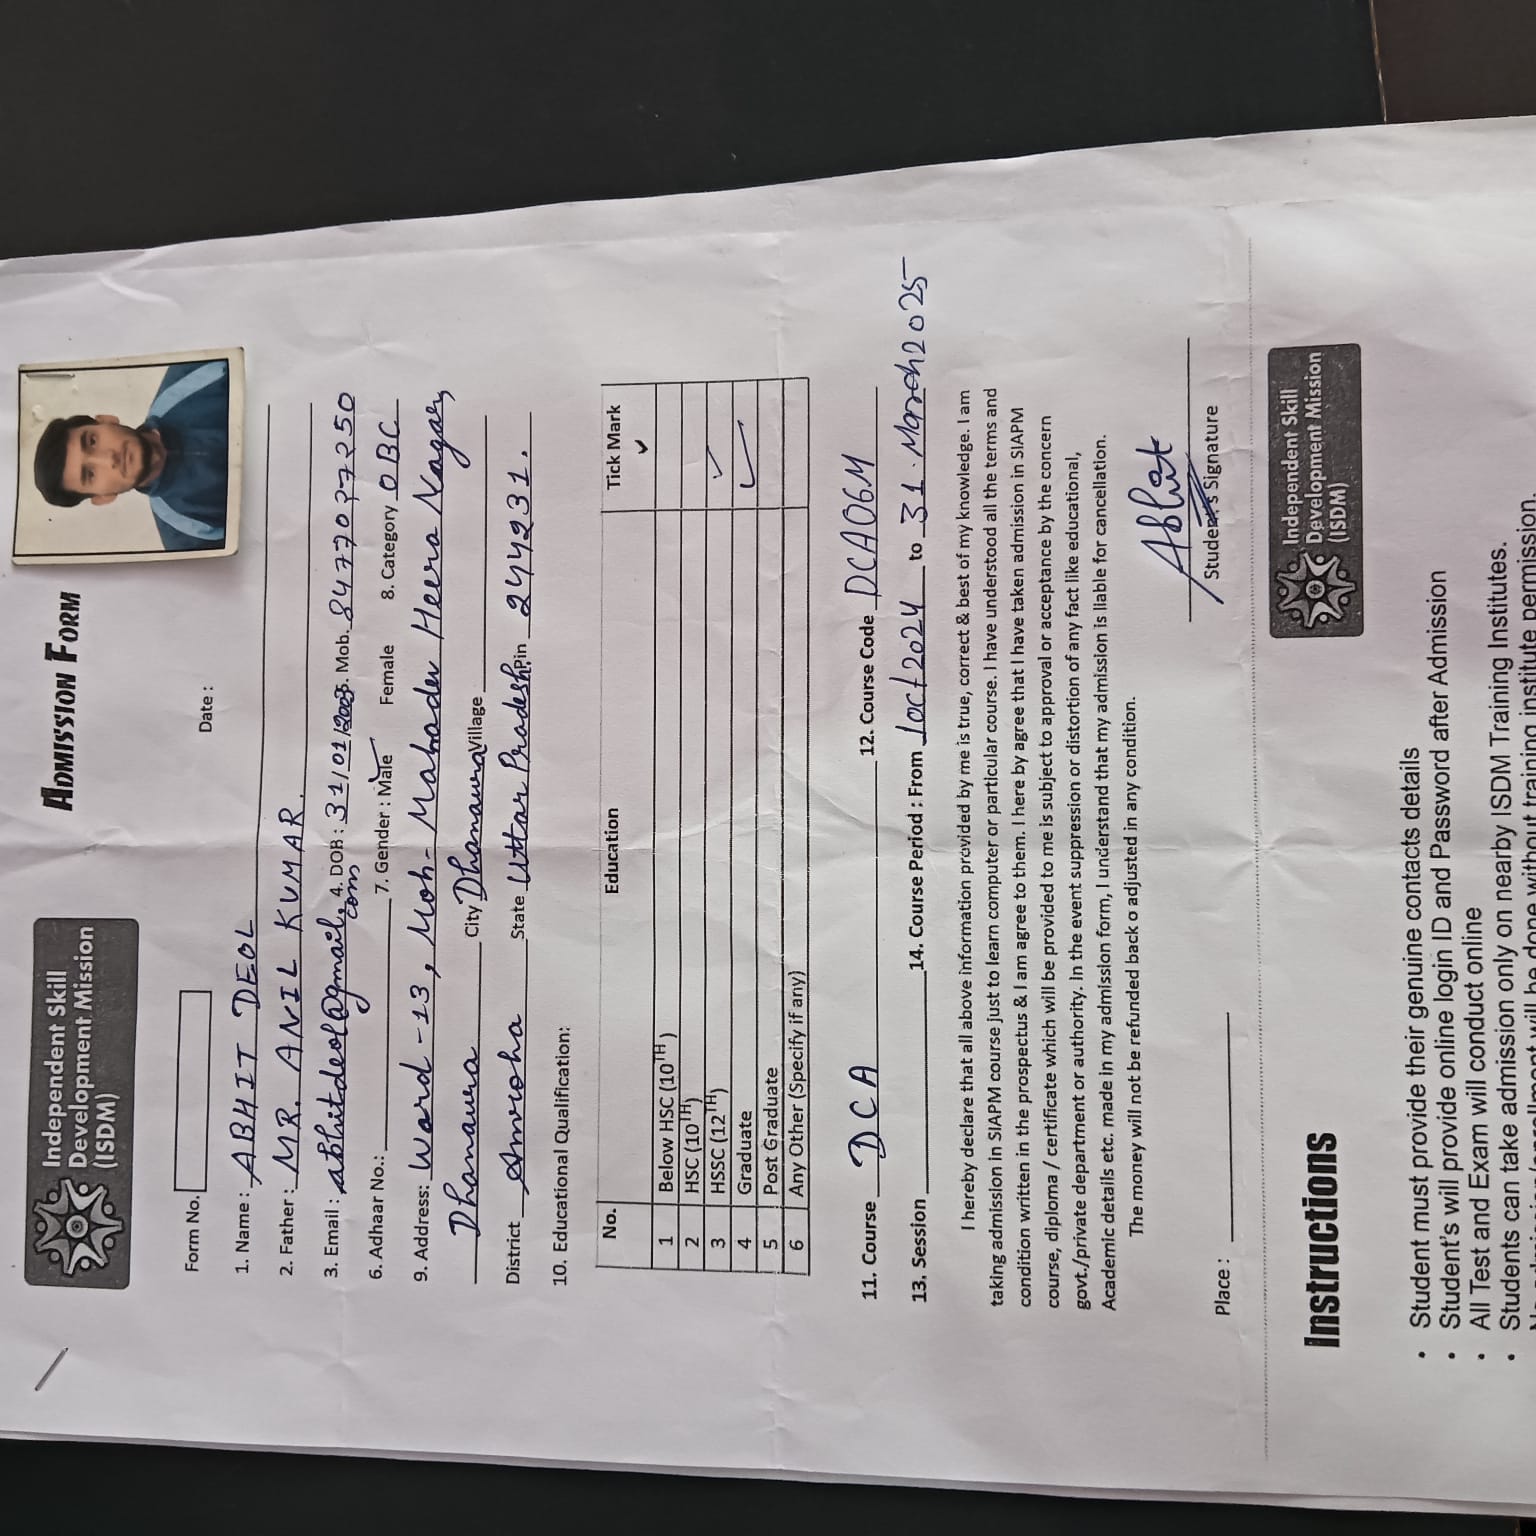 Independent Skill
Development Mission
(ISDM)
ADMISSION FORM
Form No.
Date :
1. Name : ABHIT DEOL
2. Father : MR. ANIL KUMAR.
3. Email : abhitdeol@gmail.com 4. DOB : 31/01/2003. Mob. 8477077250
6. Adhaar No.: 7. Gender : Male Female 8. Category OBC
9. Address: Ward -13, Moh- Mahadev Heera Nagar,
Dhanaura City Dhanaura Village
District Amroha State Uttar Pradesh Pin 244231.
10. Educational Qualification:
No. Education Tick Mark
✓
1 Below HSC (10TH)
2 HSC (10TH)
3 HSSC (12TH) ✓
4 Graduate ✓
5 Post Graduate
6 Any Other (Specify if any)
11. Course DCA 12. Course Code DCA06M
13. Session 14. Course Period : From 1oct2024 to 31.March2025
I hereby declare that all above information provided by me is true, correct & best of my knowledge. I am
taking admission in SIAPM course just to learn computer or particular course. I have understood all the terms and
condition written in the prospectus & I am agree to them. I here by agree that I have taken admission in SIAPM
course, diploma / certificate which will be provided to me is subject to approval or acceptance by the concern
govt./private department or authority. In the event suppression or distortion of any fact like educational,
Academic details etc. made in my admission form, I understand that my admission is liable for cancellation.
The money will not be refunded back o adjusted in any condition.
Abhit
Place : Student's Signature
Independent Skill
Development Mission
(ISDM)
Instructions
• Student must provide their genuine contacts details
• Student's will provide online login ID and Password after Admission
• All Test and Exam will conduct online
• Students can take admission only on nearby ISDM Training Institutes.
will be done without training institute permission